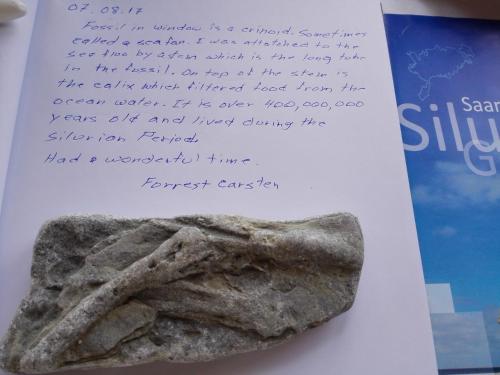 07.08.17
Fossil in window is a crinoid. Sometimes
called a sea fan. I was attatched to the
sea floo by a stem which is the long tube
in the fossil. On top of the stem is
the calix which filtered food from the
ocean water. It is over 400,000,000
years old and lived during the
Silurian Period.
Had a wonderful time.
Forrest Carsten
Saar
Silu
G